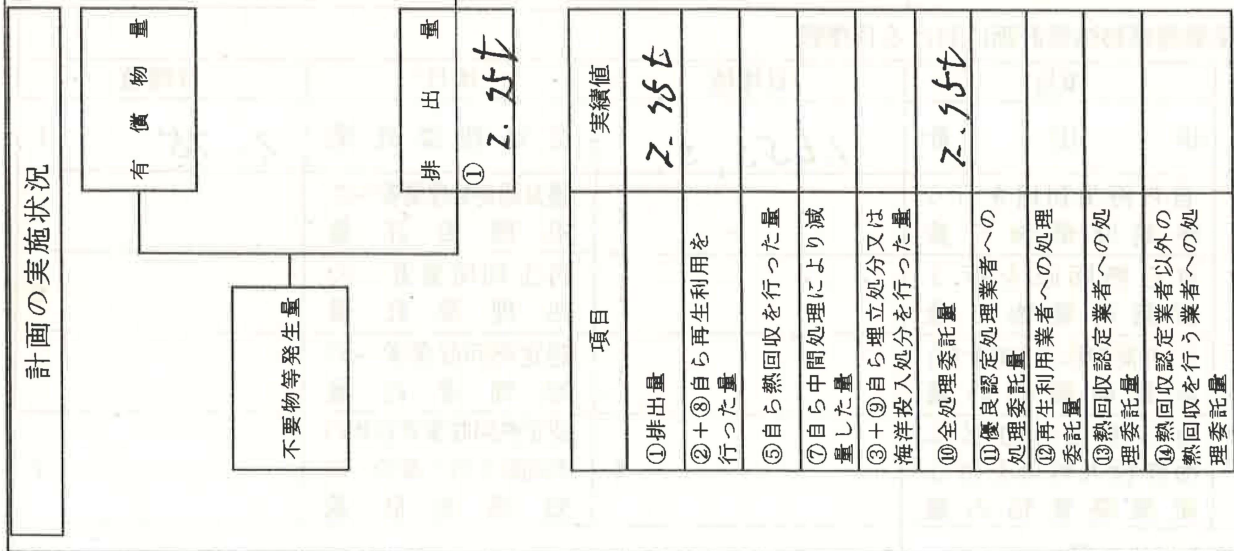 計画の実施状況
有償物量
不要物等発生量
排出量
① 2.75t
項目 実績値
①排出量 2.75t
②+⑧自ら再生利用を
行った量
⑤自ら熱回収を行った量
⑦自ら中間処理により減
量した量
③+⑨自ら埋立処分又は
海洋投入処分を行った量
⑩全処理委託量 2.75t
⑪優良認定処理業者への
処理委託量
⑫再生利用業者への処理
委託量
⑬熱回収認定業者への処
理委託量
⑭熱回収認定業者以外の
熱回収を行う業者への処
理委託量